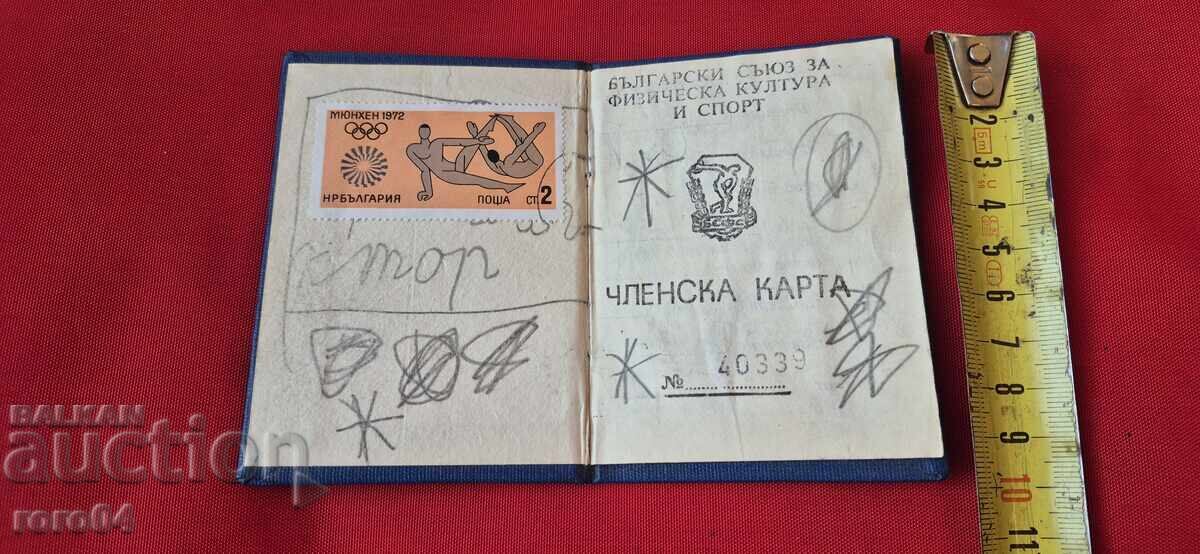 МЮНХЕН 1972
НРБЪЛГАРИЯ ПОЩА СТ. 2
БЪЛГАРСКИ СЪЮЗ ЗА
ФИЗИЧЕСКА КУЛТУРА
И СПОРТ
БСФС
ЧЛЕНСКА КАРТА
№ 40339
2
3
4
5
6
7
8
9
10
11
BALKAN
auction
roro64